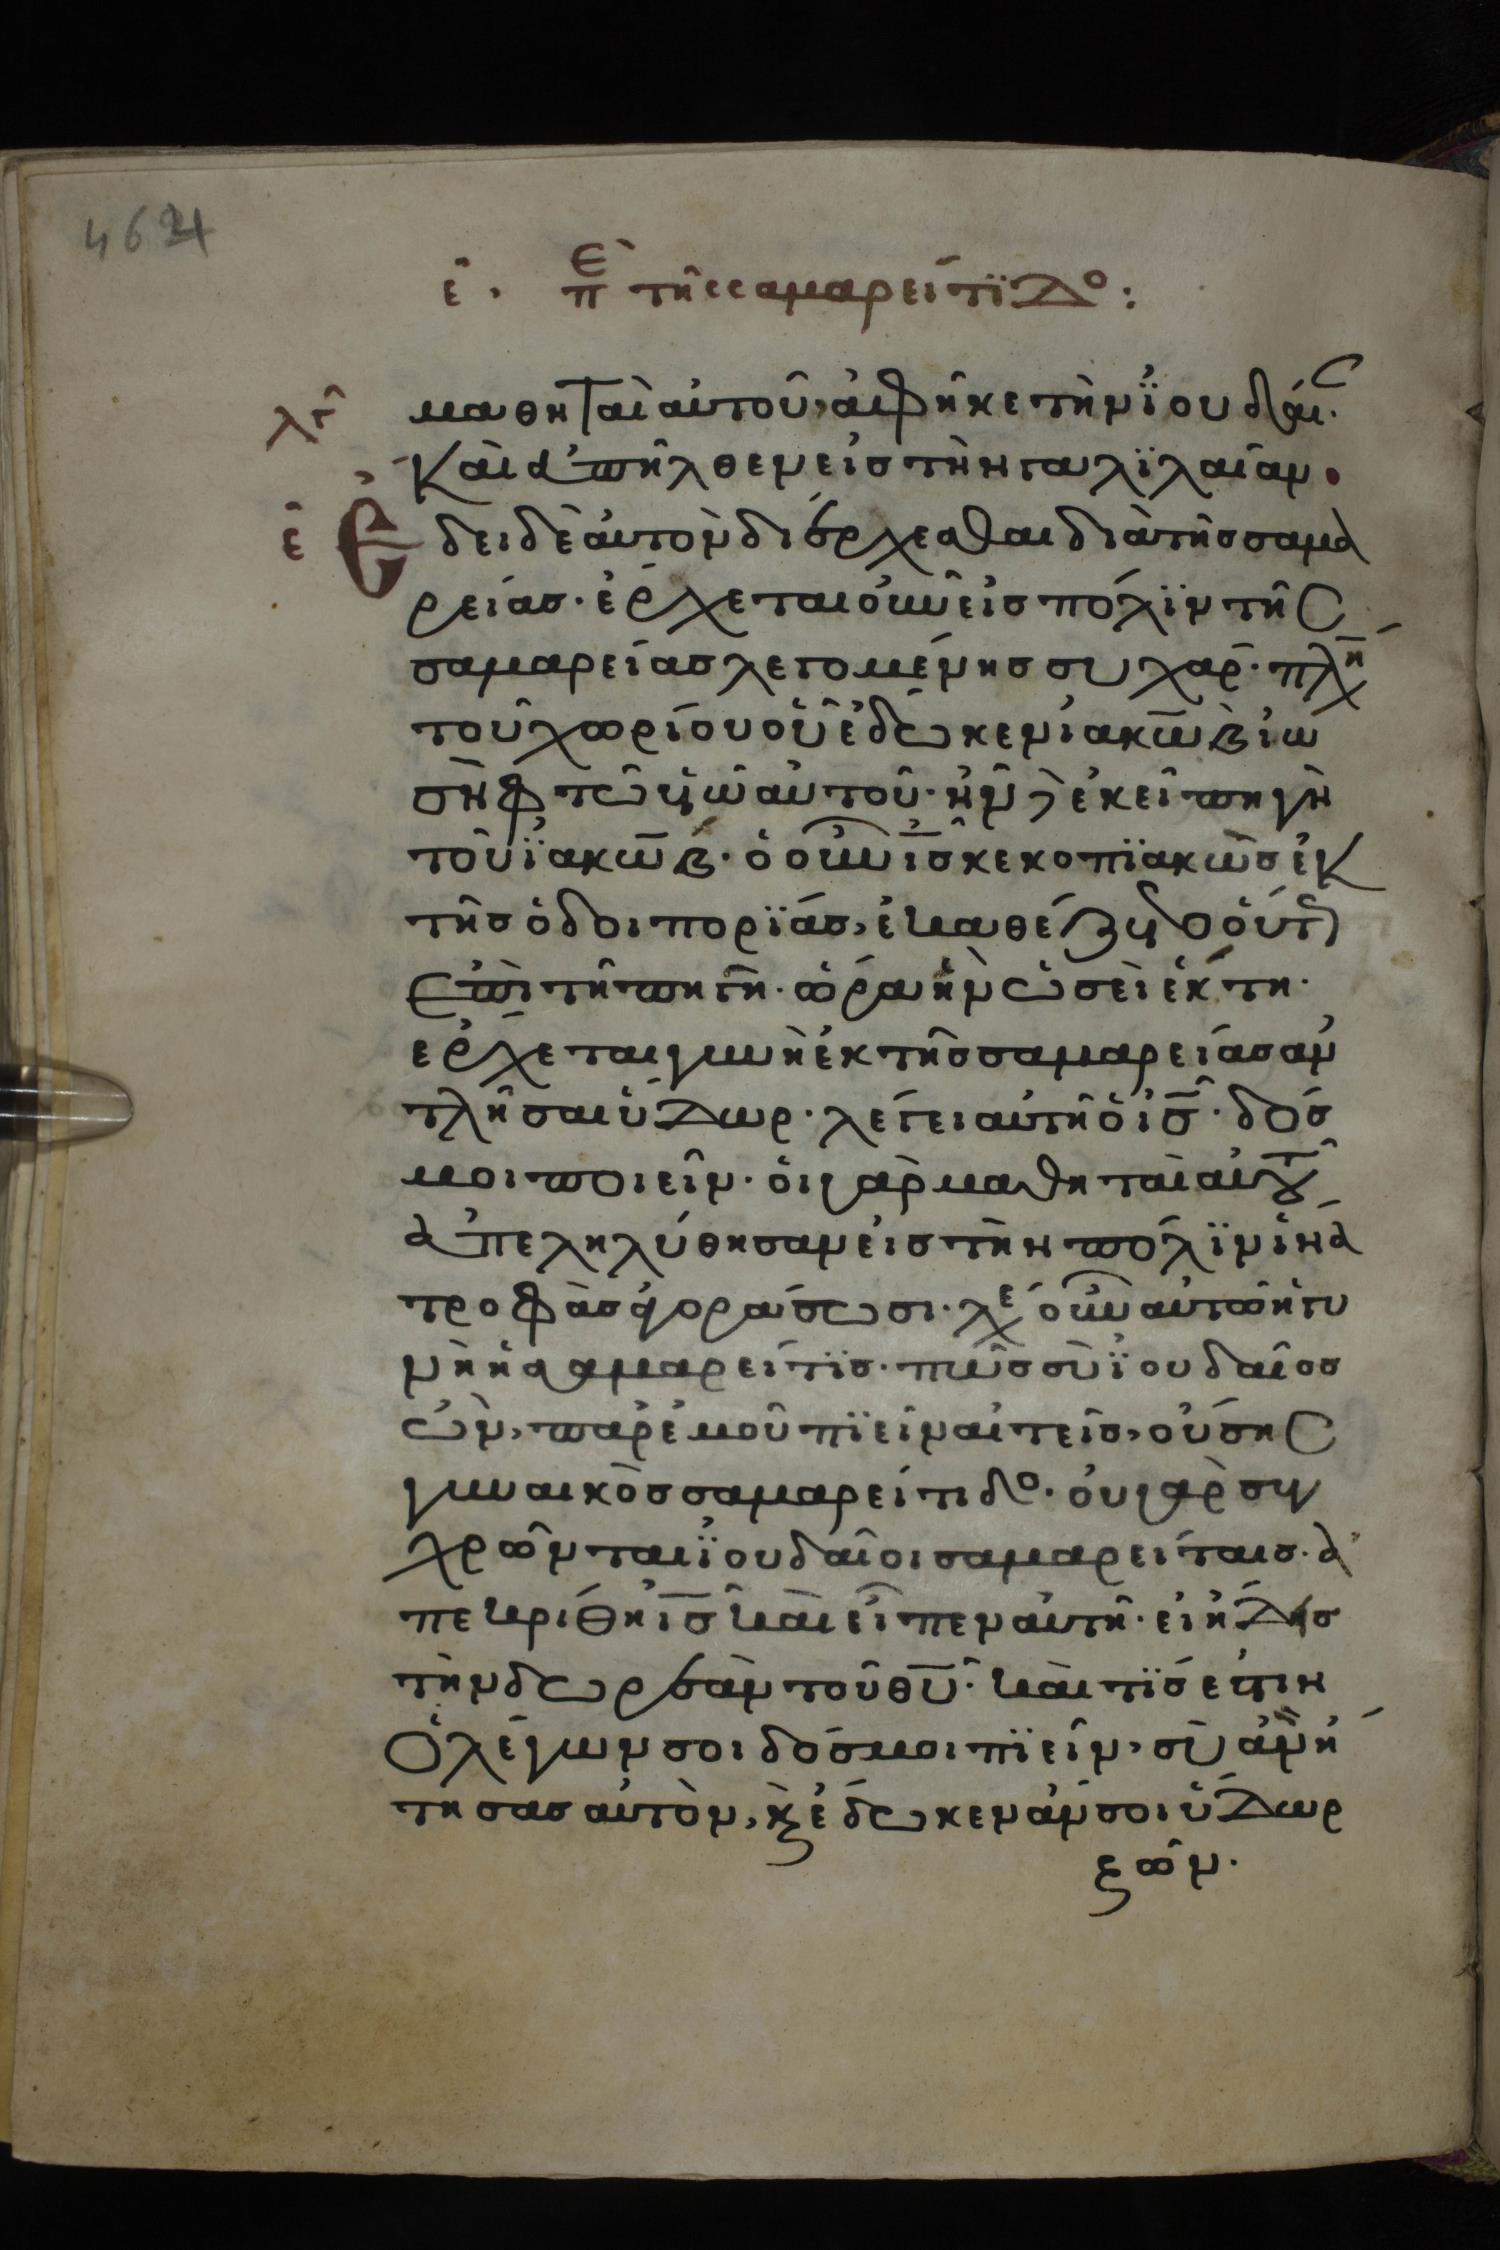 4624
ε̑. Πε τῆς σαμαρείτϊδο:
μαθηταὶ αὐτοῦ, ἀφῆκε τὴν ϊουδαίας.
λτ Καὶ ἀπῆλθεν εἰς τὴν γαλϊλαίαν.
ε̑ Ἔδει δὲ αὐτὸν διέρχεσθαι διὰ τῆς σαμα
ρείας. ἔρχεται οὖν εἰς πόλϊν τῆς
σαμαρείας λεγομένης συχάρ. πλη
τοῦ χωρίου οὗ ἔδωκεν ἰακὼβ ἰω
σὴφ τῶ υἱῶ αὐτοῦ. ἦν δὲ ἐκεῖ πηγὴ
τοῦ ϊακώβ. ὁ οὖν ις κεκοπϊακὼς ἐκ
τῆς ὁδοιπορϊάς, ἐκαθέζετο οὕτως
ἐπὶ τῆ πηγῆ. ὥρα ἦν ὡσεὶ ἕκτη.
ἔρχεται γυνὴ ἐκ τῆς σαμαρείας ἀν
τλῆσαι ὕδωρ. λέγει αὐτῆ ὁ ις. δός
μοι ποιεῖν. οἱ γὰρ μαθηταὶ αὐτοῦ
ἀπεληλύθησαν εἰς τὴν πόλϊν ἵνα
τροφὰς ἀγοράσωσι. λε οὖν αὐτῶ ἡ γυ
νὴ ἡ σαμαρείτϊς. πῶς σὺ ϊουδαῖος
ὢν, παρ' ἐμοῦ πϊεῖν αἰτεῖς, οὔσης
γυναικὸς σαμαρείτιδο. οὐ γὰρ συγ
χρῶνται ϊουδαῖοι σαμαρείταις. ἀ
πεκρίθη ις καὶ εἶπεν αὐτῆ. εἰ ἤδης
τὴν δωρεὰν τοῦ θυ. καὶ τϊς ἐστιν
ὁ λέγων σοι δός μοι πϊεῖν, σὺ ἂν ἤ
τησας αὐτὸν, κ ἔδωκεν ἄν σοι ὕδωρ
ζῶν.